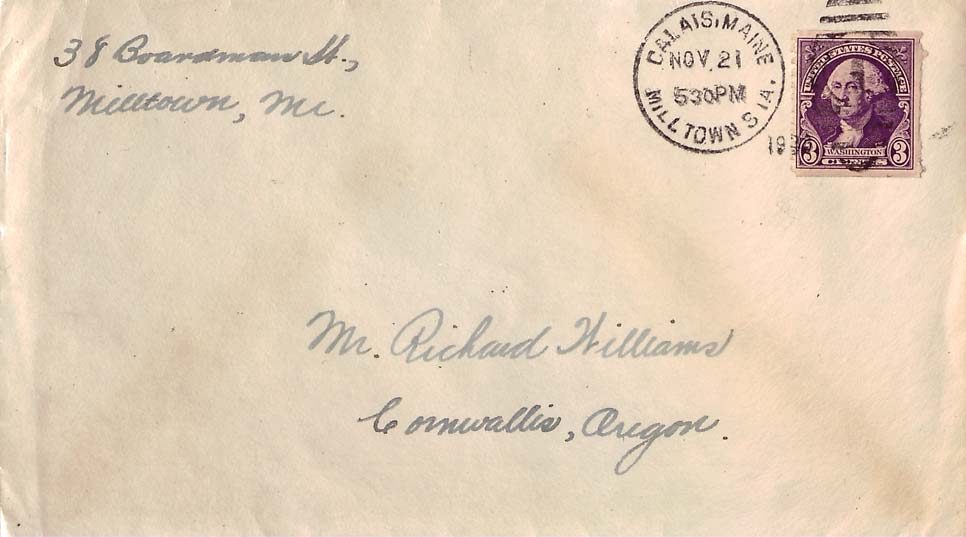 38 Boardman St.,
Milltown, Me.
CALAIS, MAINE
NOV. 21
5 30 PM
MILLTOWN STA.
UNITED STATES POSTAGE
3 WASHINGTON 3
CENTS
Mr. Richard Williams
Cornwallis, Oregon.